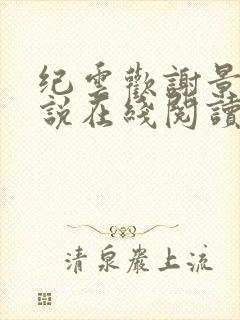 紀雲歡謝景
說在綫閱讀
清泉巖上流